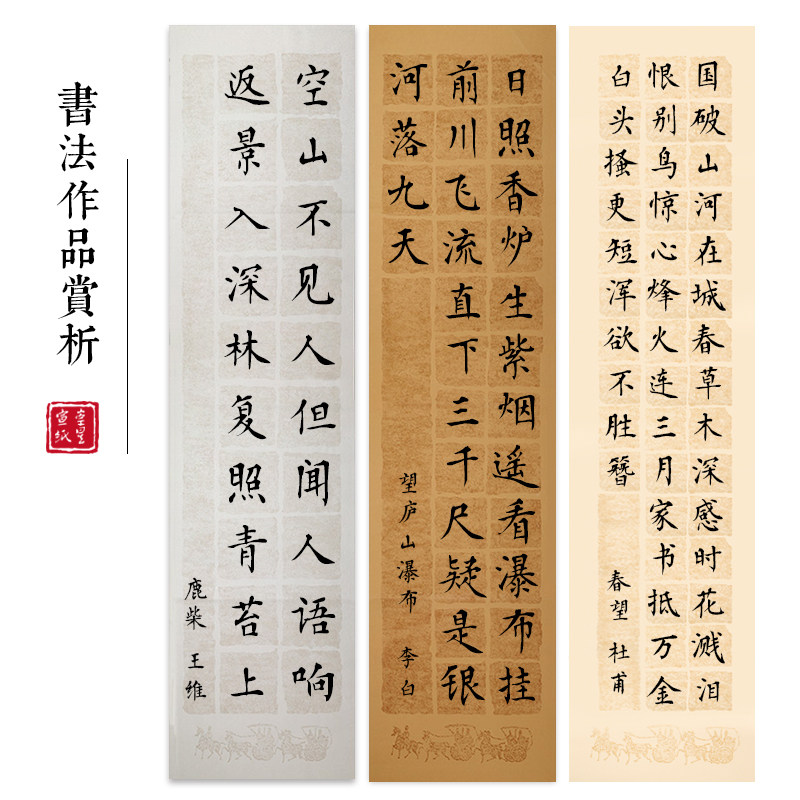 書法作品賞析
空山不见人但闻人语响
返景入深林复照青苔上
鹿柴 王维
日照香炉生紫烟遥看瀑布挂
前川飞流直下三千尺疑是银
河落九天
望庐山瀑布 李白
国破山河在城春草木深感时花溅泪
恨别鸟惊心烽火连三月家书抵万金
白头搔更短浑欲不胜簪
春望 杜甫